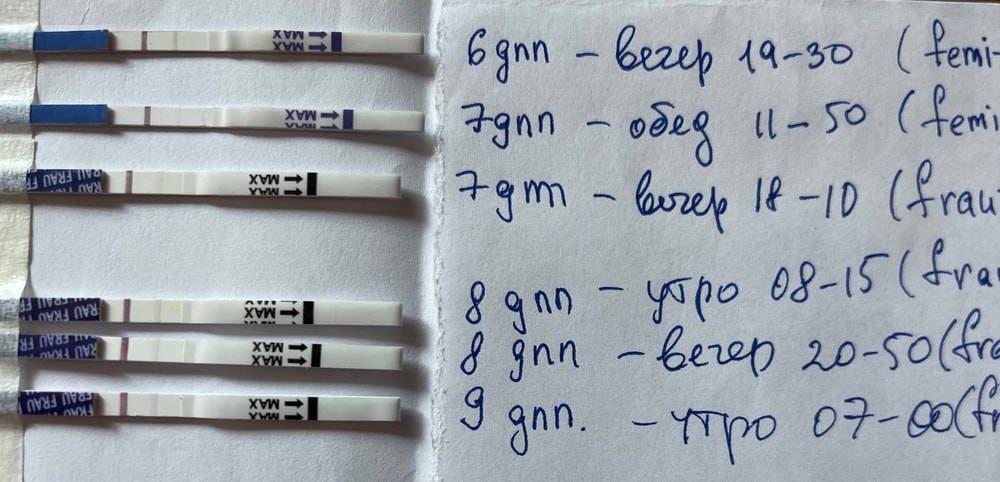 MAX
MAX
6 дпп - вечер 19-30 (femi-
MAX
MAX
7 дпп - обед 11-50 (femi
RAU FRAU FR
MAX
MAX
7 дпп - вечер 18-10 (frau
RAU FRAU FRAU
MAX
MAX
8 дпп - утро 08-15 (frau
RAU FRAU
MAX
MAX
8 дпп - вечер 20-50 (fra
FRAU FRAU
MAX
MAX
9 дпп. - утро 07-00 (fr